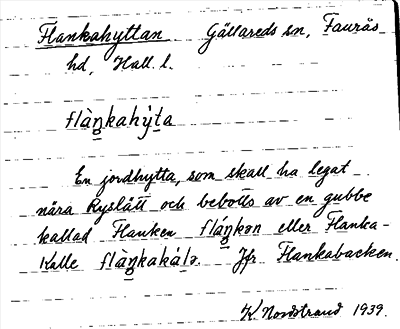 Flankahyttan Gällareds sn, Faurås
hd, Hall. l.
flàŋkahy̆ta
En jordhytta, som skall ha legat
nära Ryslätt och bebotts av en gubbe
kallad Flanken fláŋkən eller Flanka-
Kalle flàŋkakàlə. Jfr. Flankabacken.
K. Nordstrand 1939.